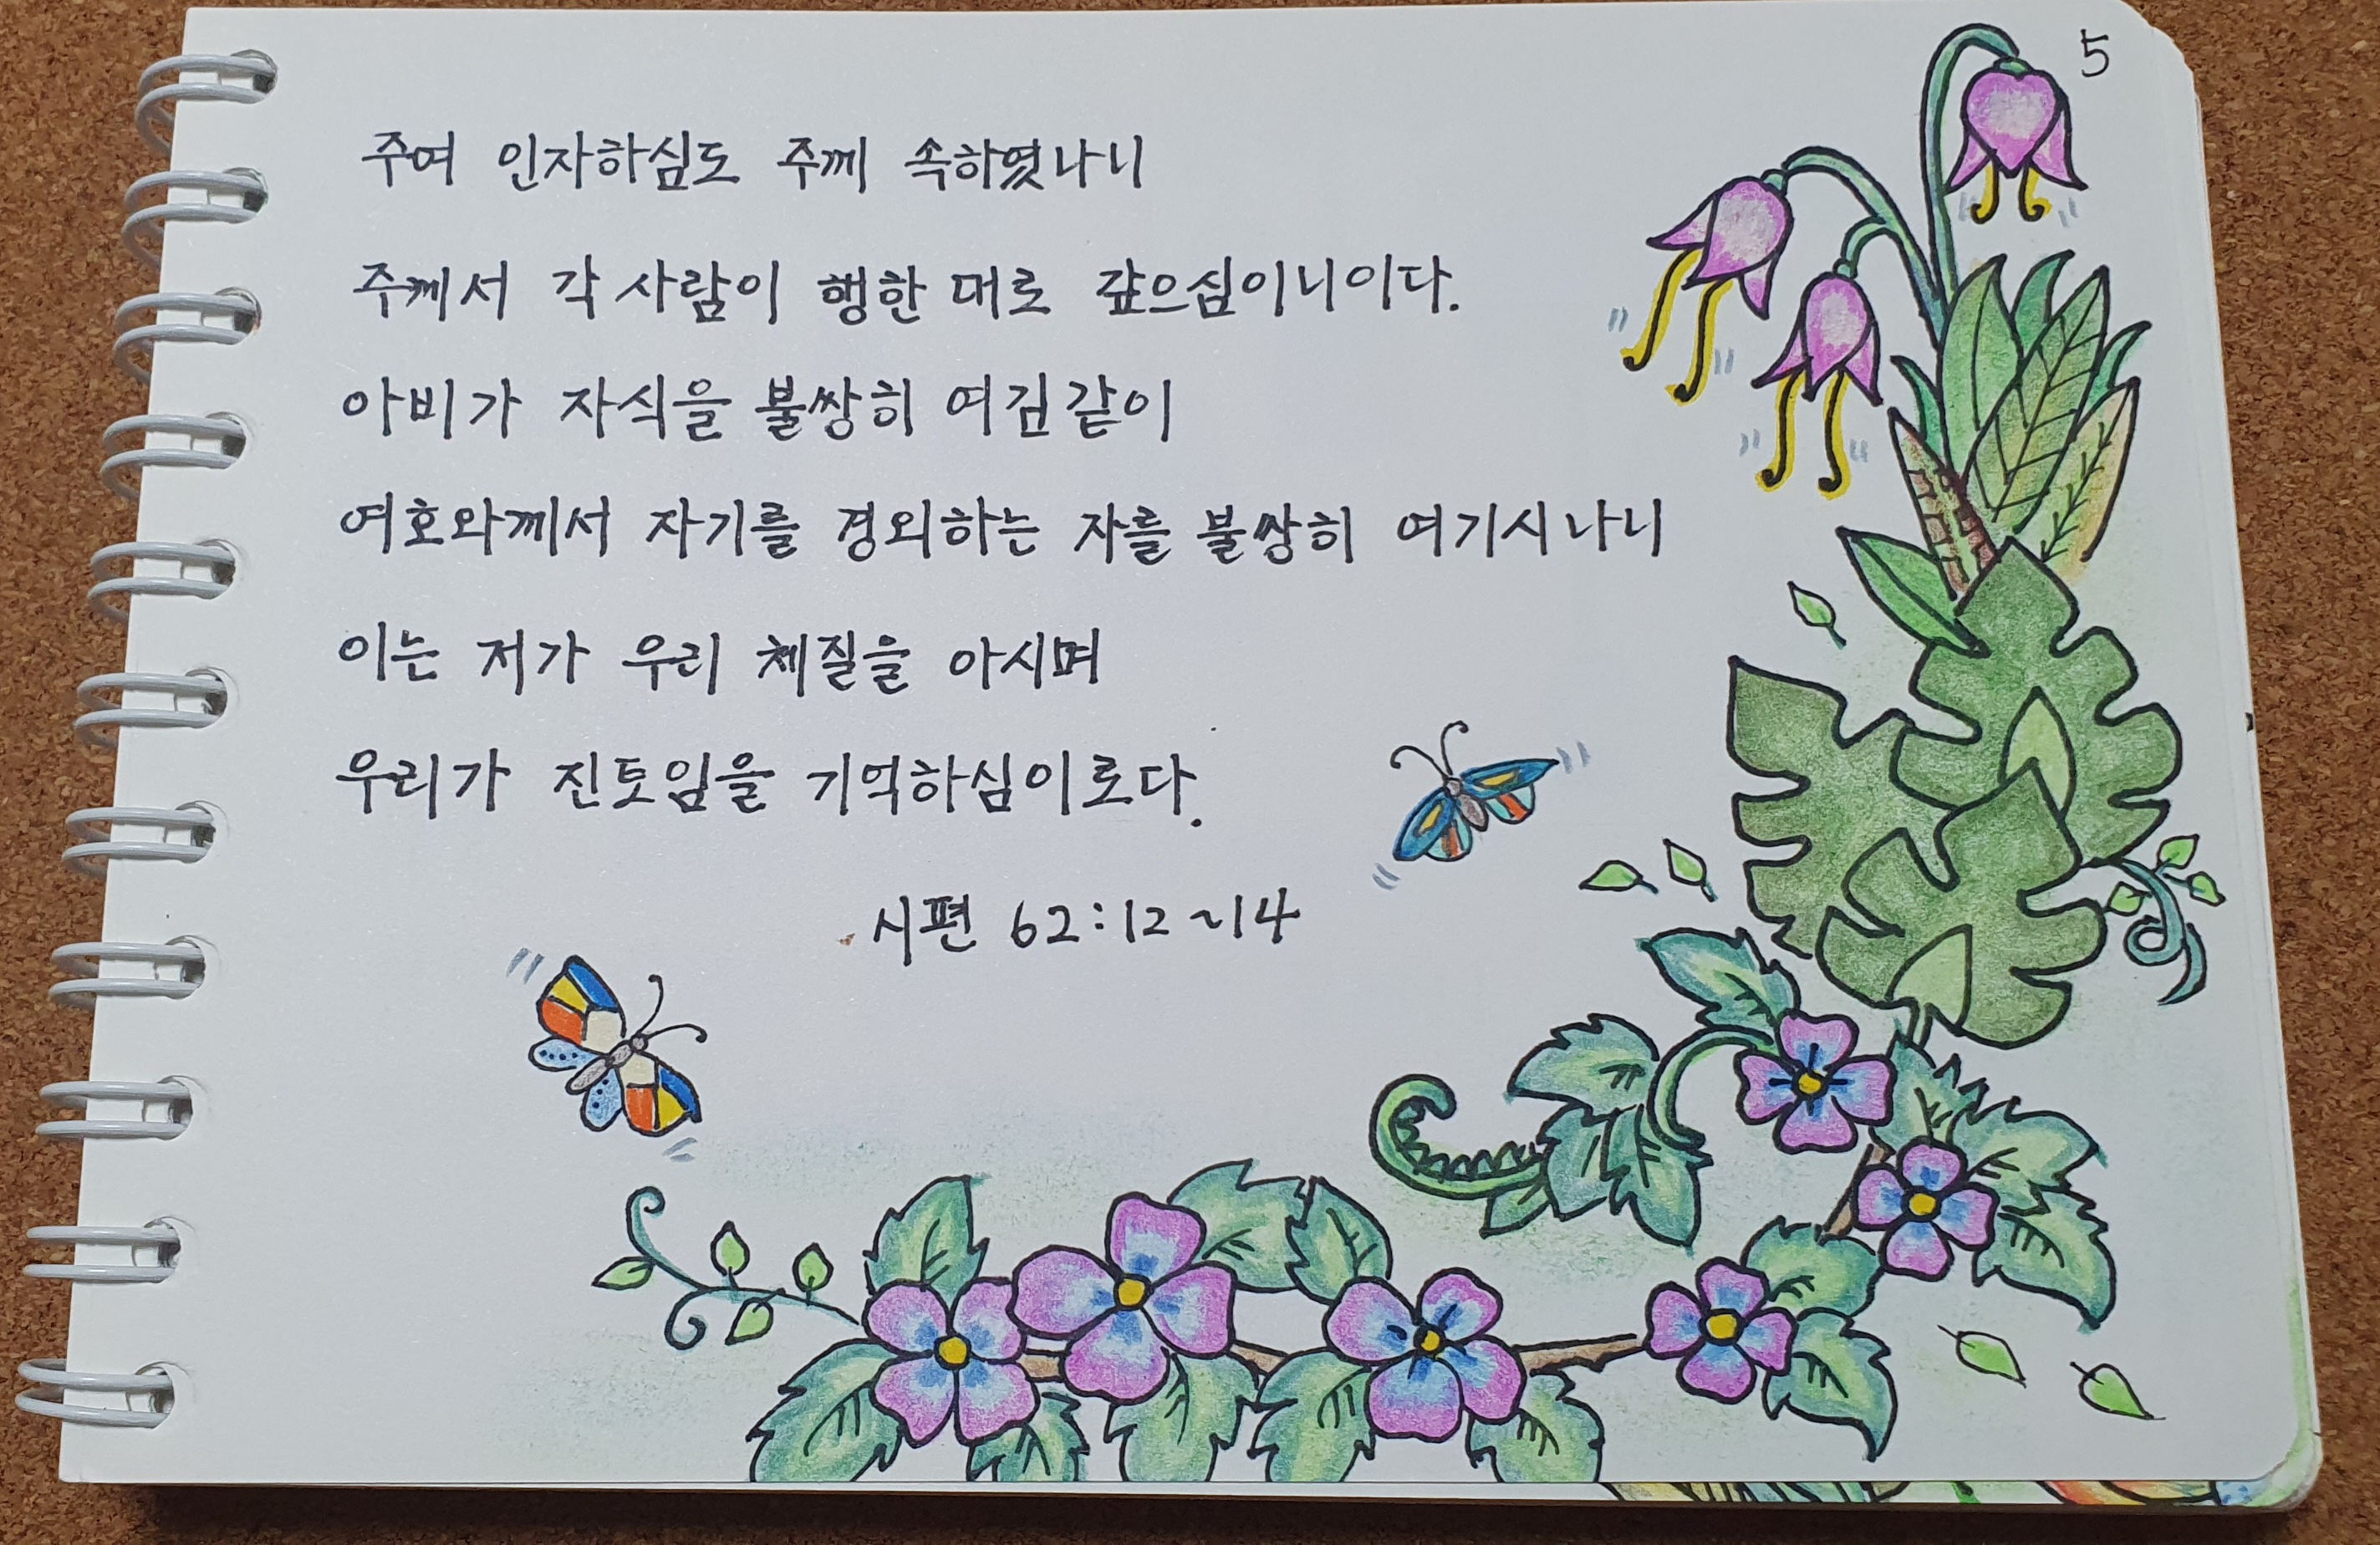 5
주여 인자하심도 주께 속하였나니
주께서 각 사람이 행한 대로 갚으심이니이다.
아비가 자식을 불쌍히 여김같이
여호와께서 자기를 경외하는 자를 불쌍히 여기시나니
이는 저가 우리 체질을 아시며
우리가 진토임을 기억하심이로다.
시편 62:12~14